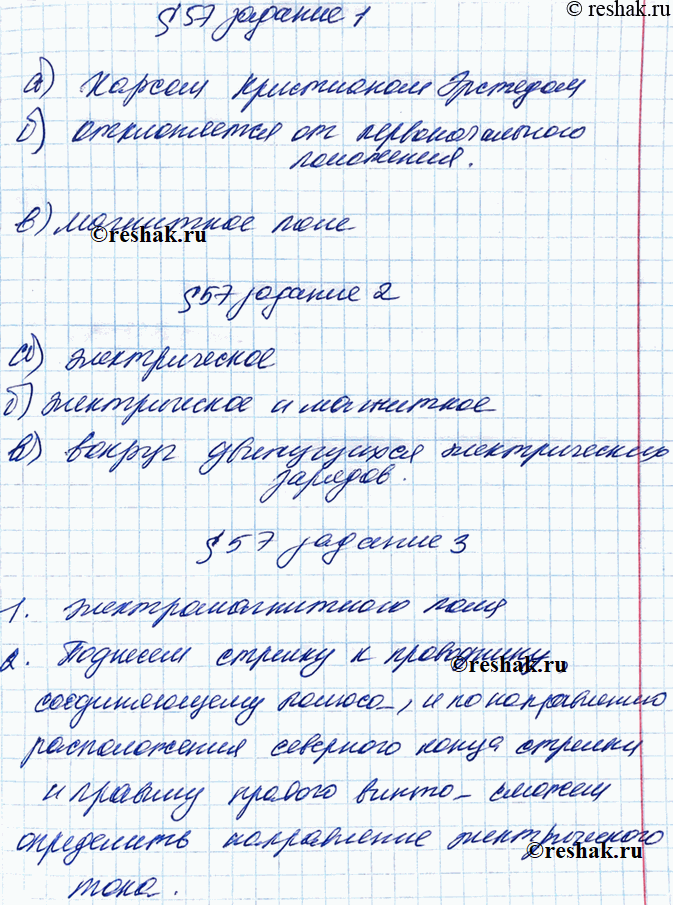 © reshak.ru
§57 задание 1
а) Хансом Кристианом Эрстедом
б) отклоняется от первоначального
положения.
в) магнитное поле
©reshak.ru
§57 задание 2
а) электрическое
б) электрическое и магнитное
в) вокруг движущихся электрических
зарядов.
§57 задание 3
1. электромагнитного поля
2. Поднесем стрелку к проводнику,
©reshak.ru
соединяющему полюса, и по направлению
расположения северного конца стрелки
и правилу правого винта сможем
определить направление электрического
©reshak.ru
тока.